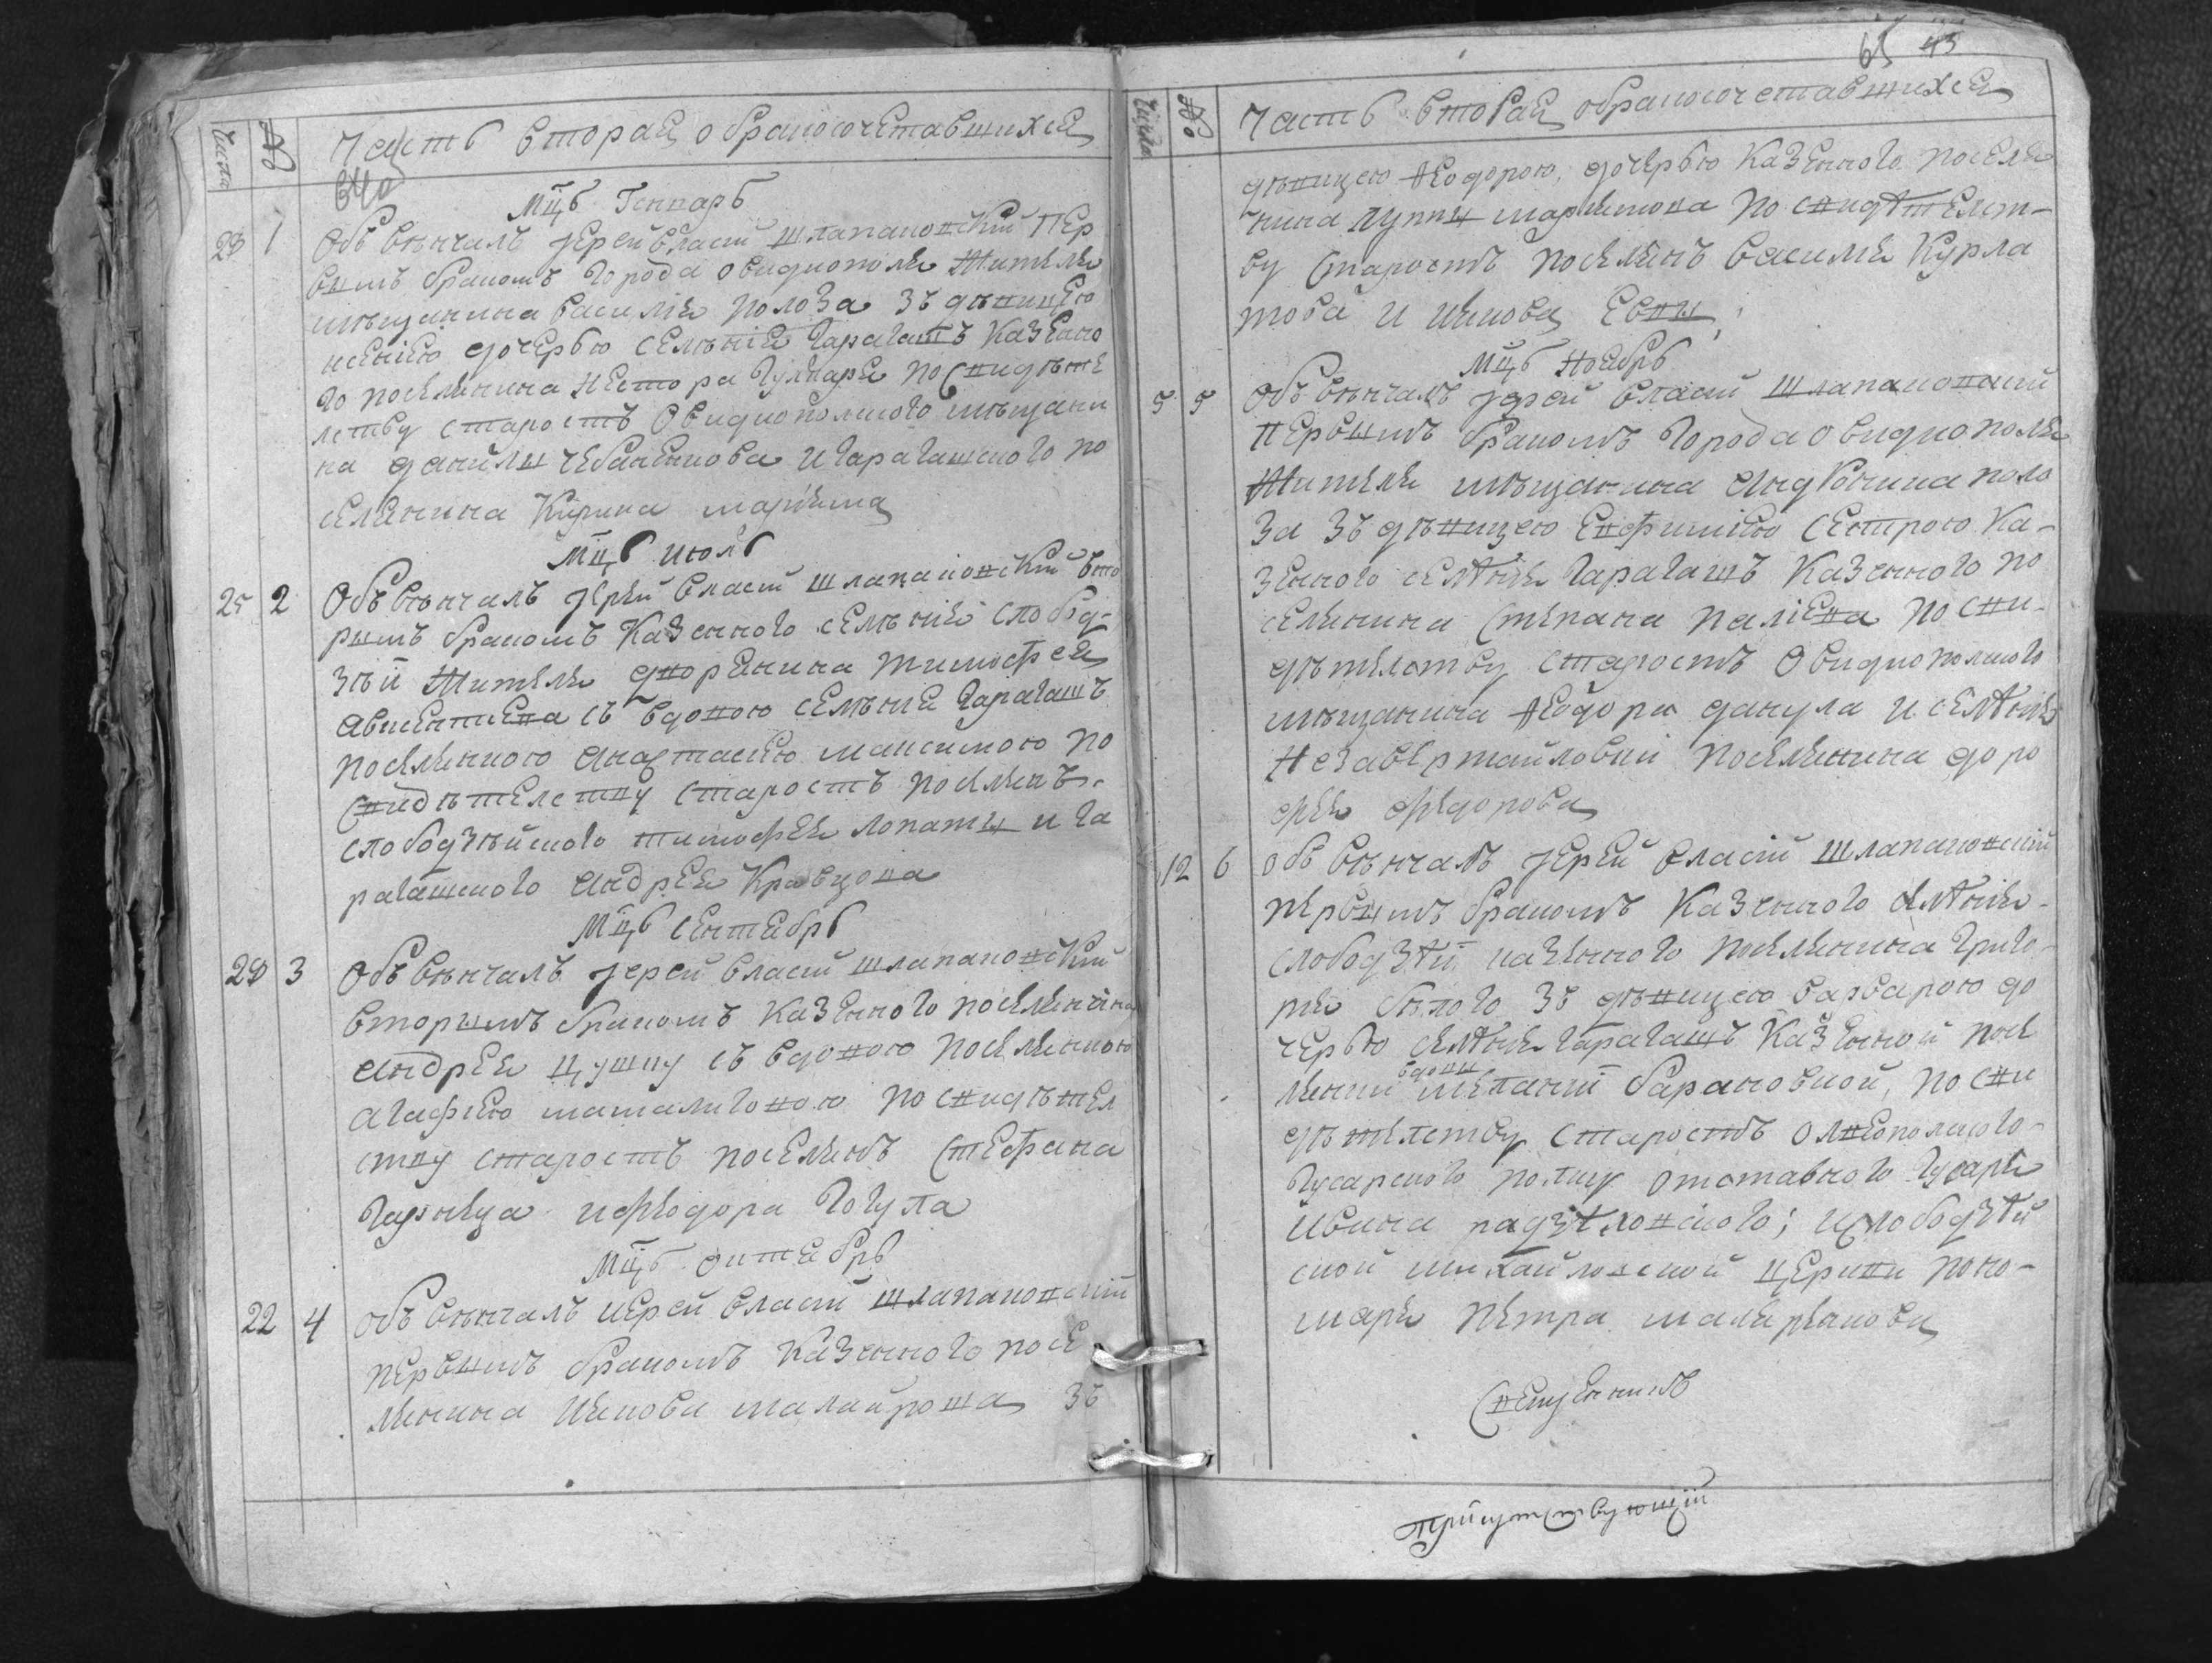 Числа № Часть вторая о бракосочетавшихся
Мцъ Генварь
23 1 Обвѣнчалъ іерей Власій Шлапаковскій пер
вымъ бракомъ города Овидиополя жителя
мѣщанина Василія Полоза зъ дѣвицею
Ксеніею дочерью селѣнія Карагашъ казенно
го поселянина Нестора по свидѣте
лству старостъ Овидиополского мѣщани
на Данйлы и Карагашского по
селянина Кирила
Мцъ июль
25 2 Обвѣнчалъ іерей Власій Шлапаковскій вто
рымъ бракомъ казенного селѣнія Слобод-
зѣй жителя дворянина Тимофея
Авксентиева съ вдовою селѣния Карагашъ
поселянкою Анастасіею Максимою по
свидѣтелству старостъ поселянъ
слободзѣйского Тимофея Лопаты и ка
рагашского Андрея Кравцова
Мцъ сентябрь
28 3 Обвѣнчалъ іерей Власій Шлапаковскій
вторымъ бракомъ казенного поселянина
Андрея Цушку съ вдовою поселянкою
Агафіею по свидѣтел
ству старостъ поселянъ Стефана
и Феодора Гогула
Мцъ октябрь
22 4 Обвѣнчалъ иерей Власій Шлапаковскій
первымъ бракомъ казенного посе
лянина Иякова Малайроша зъ
65 43
Числа № Часть вторая о бракосочетавшихся
дѣвицею Феодорою, дочерью казенного поселя
нина Луппы по свидѣтелст-
ву старостъ поселянъ Василия Курла
това и Иякова
Мцъ ноябрь
5 5 Обвѣнчалъ іерей Власій Шлапаковскій
первымъ бракомъ города Овидиополя
жителя мѣщанина Андроника Поло
за зъ дѣвицею Евфимиею сестрою ка-
зенного селѣния Карагашъ казенного по
селянина Степана Палиева по сви-
дѣтелству старостъ Овидиополского
мѣщанина Феодора Данула и селѣния
Незавертайловки поселянина Доро
фея Федорова
12 6 Обвѣнчалъ іерей Власій Шлапаковскій
первымъ бракомъ казенного селѣния
Слободзѣй казенного поселянина Григо
рия Бѣлого зъ дѣвицею Варварою до
черью селѣния Карагашъ казенной посе
лянки вдовы Барановской, по сви
дѣтелству старостъ Олвеополского
гусарского полку отставного гусаря
Ивана Радзѣловского; и Слободзѣй
ской Михайловской церкви поно-
маря Петра
Священникъ
присутствующій